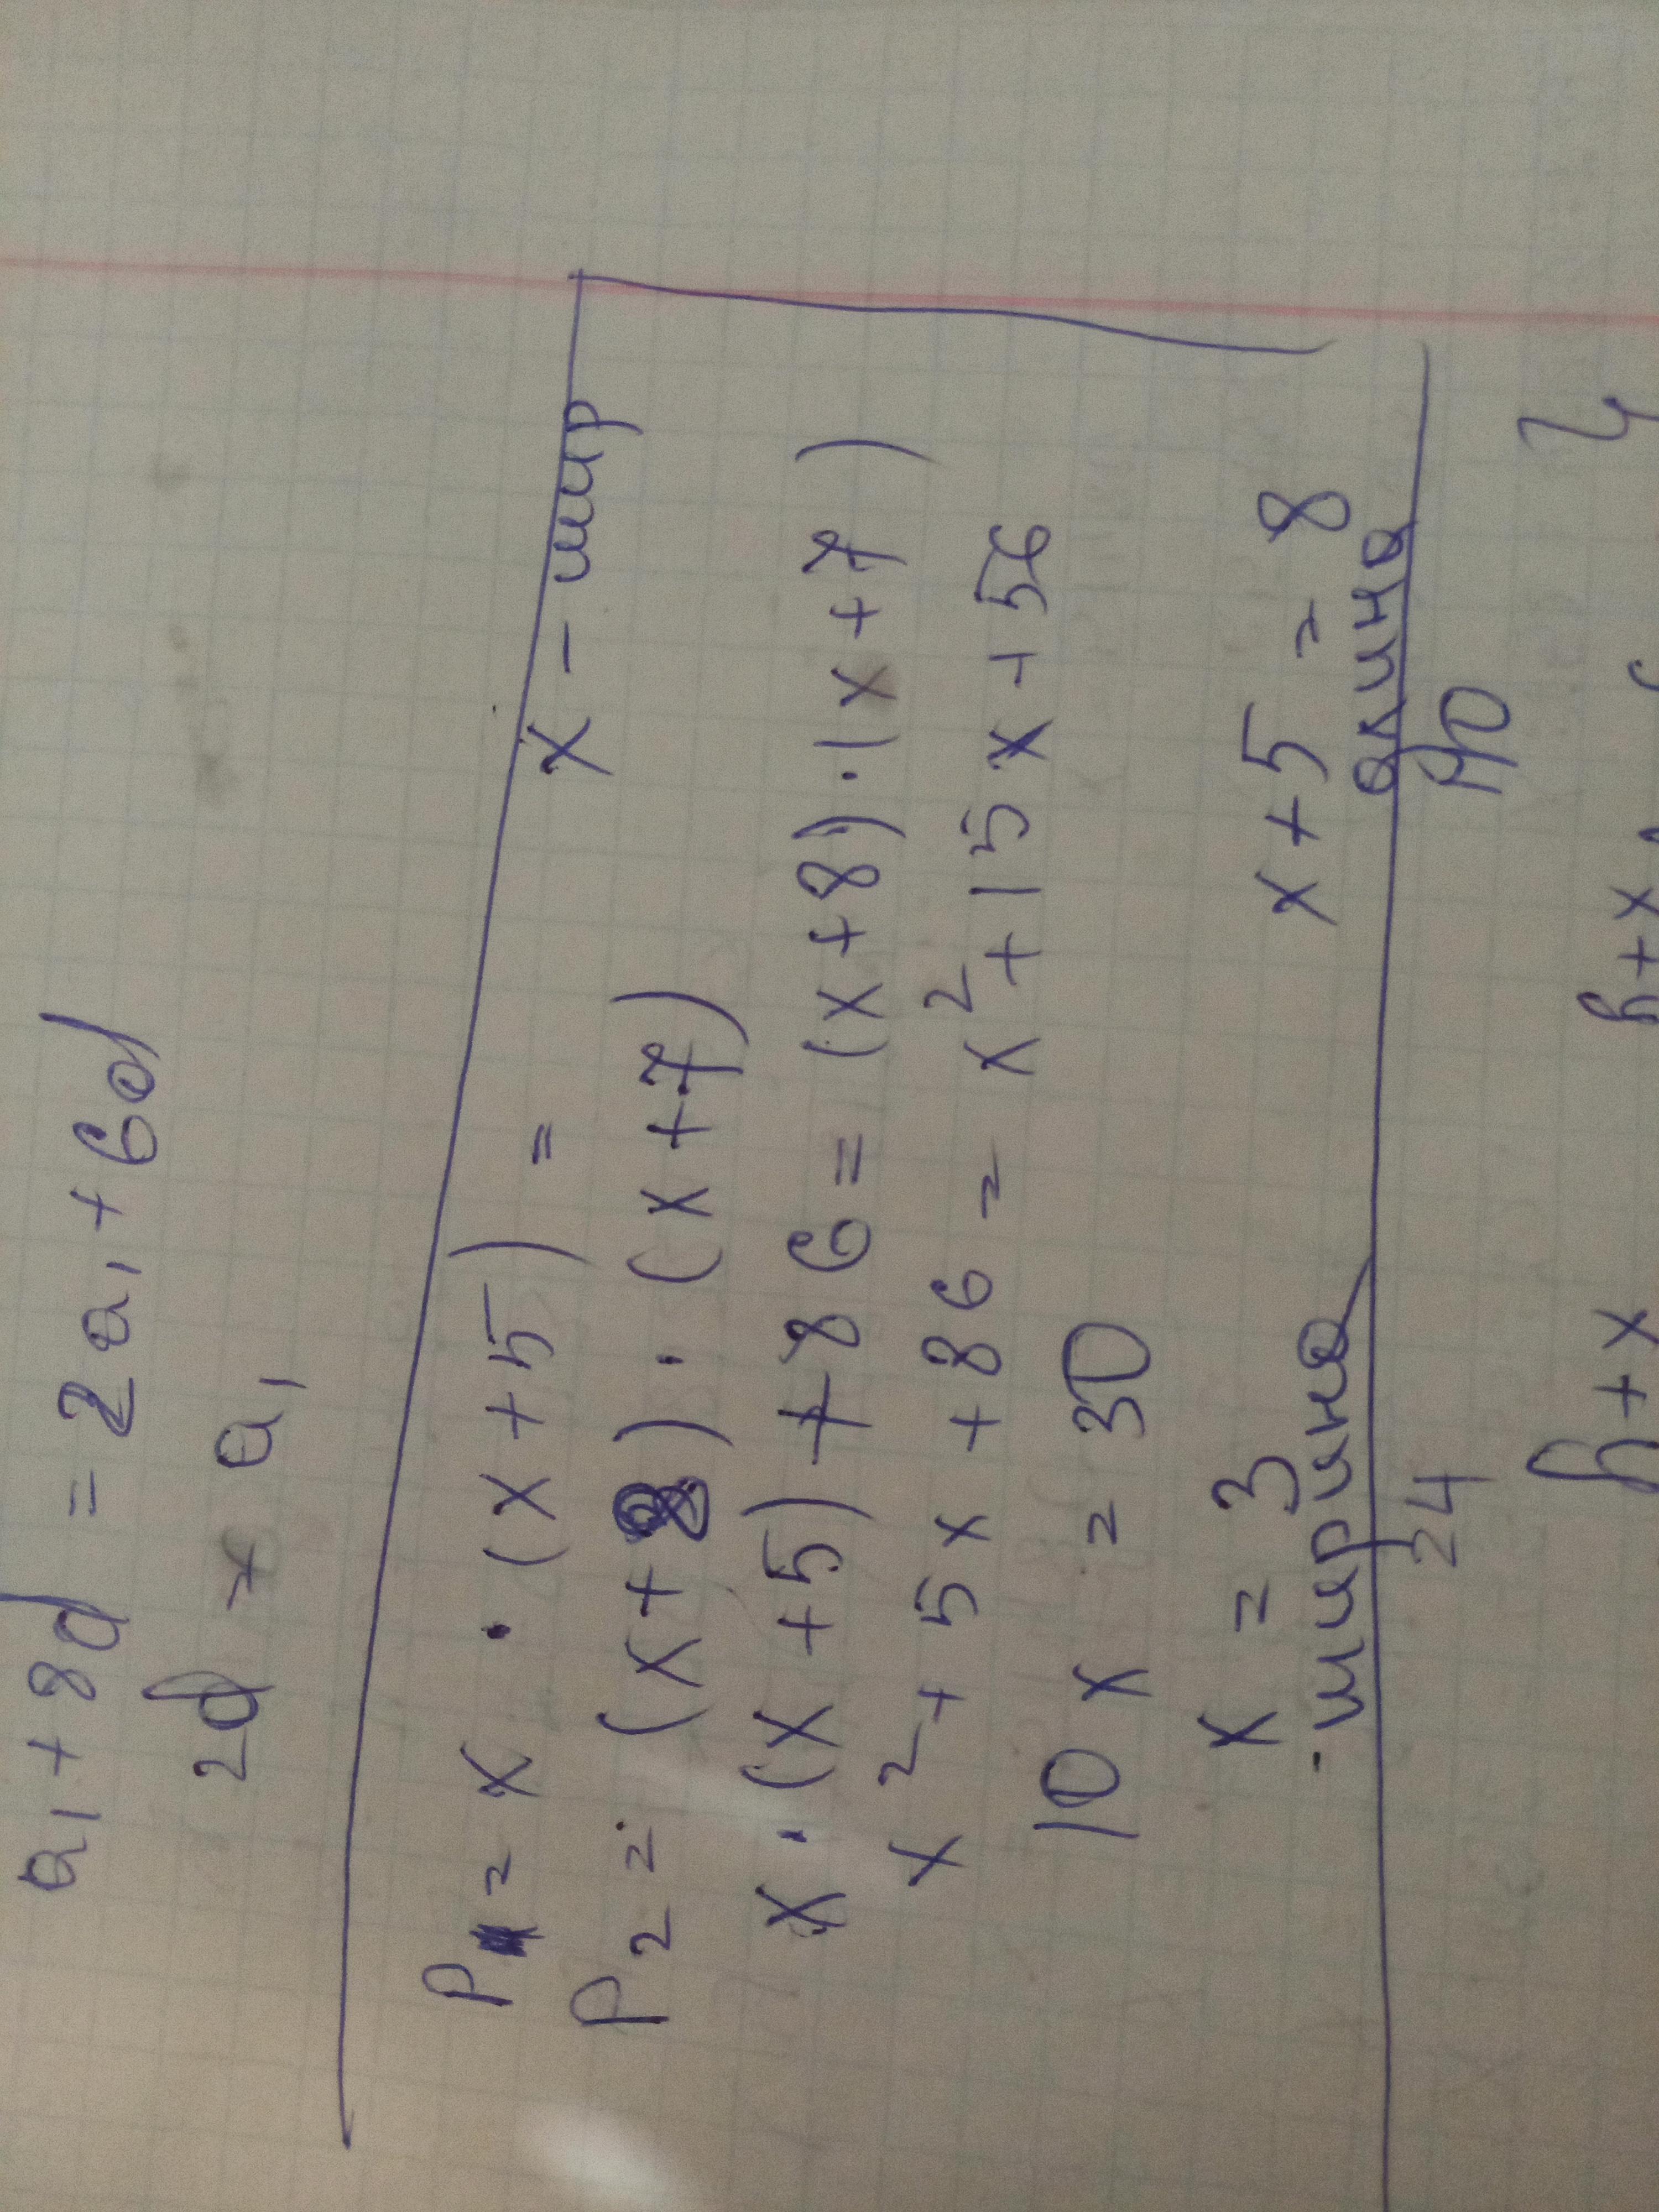 a₁ + 8d = 2a₁ + 6d
2d = a₁
P = x · (x + 5) = x - шир
P₂ = (x + 8) · (x + 7)
x · (x + 5) + 86 = (x + 8) · (x + 7)
x² + 5x + 86 = x² + 15x + 56
10x = 30
x = 3 x + 5 = 8
- ширина длина
24 40